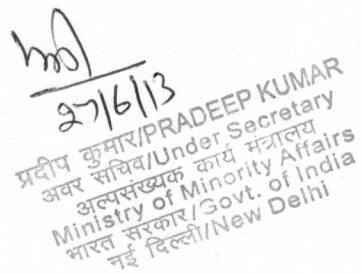 27/6/13
प्रदीप कुमार/PRADEEP KUMAR
अवर सचिव/Under Secretary
अल्पसंख्यक कार्य मंत्रालय
Ministry of Minority Affairs
भारत सरकार/Govt. of India
नई दिल्ली/New Delhi